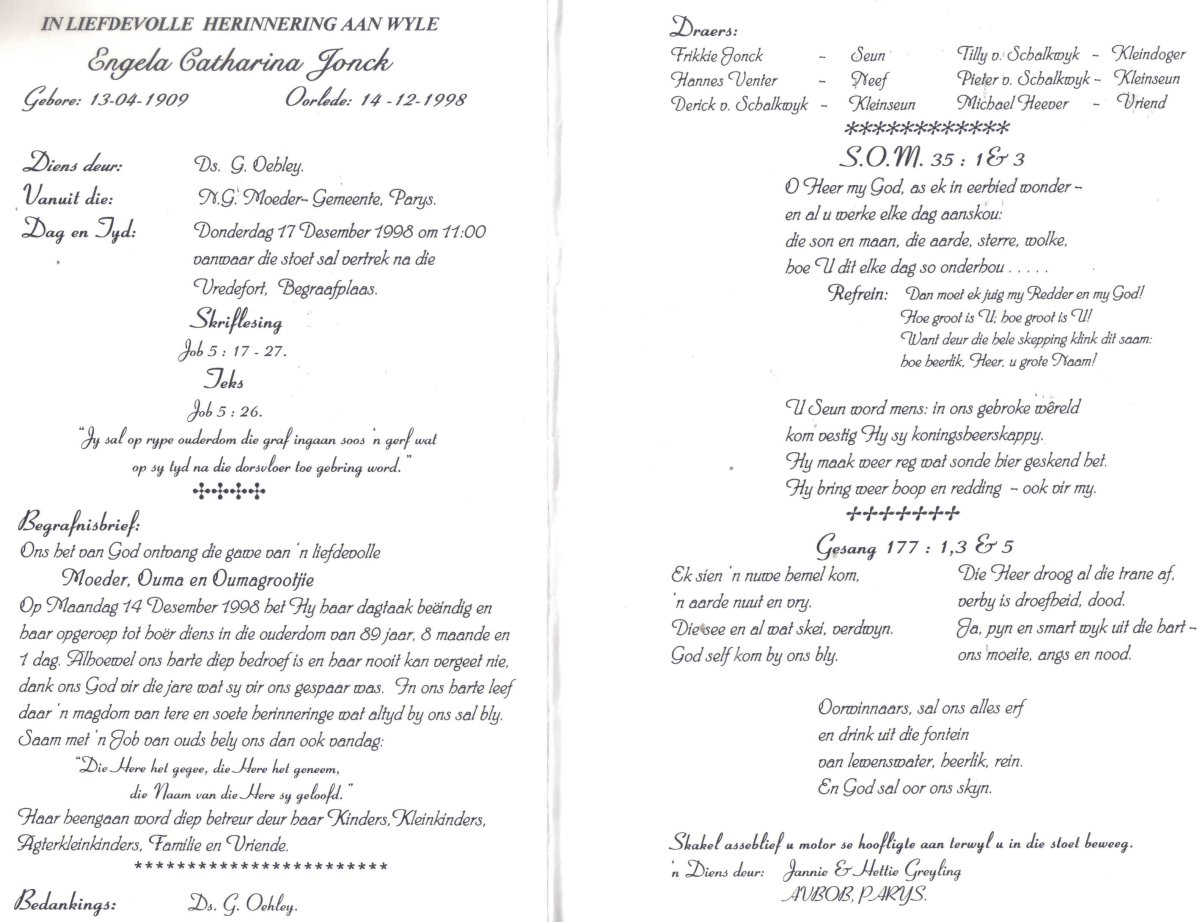 IN LIEFDEVOLLE HERINNERING AAN WYLE
Engela Catharina Jonck
Gebore: 13-04-1909 Oorlede: 14-12-1998
Diens deur: Ds. G. Oehley.
Vanuit die: N.G. Moeder-Gemeente, Parys.
Dag en Tyd: Donderdag 17 Desember 1998 om 11:00
vanwaar die stoet sal vertrek na die
Vredefort, Begraafplaas.
Skriflesing
Job 5 : 17 - 27.
Teks
Job 5 : 26.
"Jy sal op rype ouderdom die graf ingaan soos 'n gerf wat
op sy tyd na die dorsvloer toe gebring word."
Begrafnisbrief:
Ons het van God ontvang die gawe van 'n liefdevolle
Moeder, Ouma en Oumagrootjie
Op Maandag 14 Desember 1998 het Hy haar dagtaak beëindig en
haar opgeroep tot hoër diens in die ouderdom van 89 jaar, 8 maande en
1 dag. Alhoewel ons harte diep bedroef is en haar nooit kan vergeet nie,
dank ons God vir die jare wat sy vir ons gespaar was. In ons harte leef
daar 'n magdom van tere en soete herinneringe wat altyd by ons sal bly.
Saam met 'n Job van ouds bely ons dan ook vandag:
"Die Here het gegee, die Here het geneem,
die Naam van die Here sy geloofd."
Haar heengaan word diep betreur deur haar Kinders, Kleinkinders,
Agterkleinkinders, Familie en Vriende.
************************
Bedankings: Ds. G. Oehley.
Draers:
Frikkie Jonck - Seun Tilly v. Schalkwyk - Kleindogter
Hannes Venter - Neef Pieter v. Schalkwyk - Kleinseun
Derick v. Schalkwyk - Kleinseun Michael Heever - Vriend
************
S.O.M. 35 : 1 & 3
O Heer my God, as ek in eerbied wonder -
en al u werke elke dag aanskou:
die son en maan, die aarde, sterre, wolke,
hoe U dit elke dag so onderhou . . . . .
Refrein: Dan moet ek juig my Redder en my God!
Hoe groot is U; hoe groot is U!
Want deur die hele skepping klink dit saam:
hoe heerlik, Heer, u grote Naam!
U Seun word mens: in ons gebroke wêreld
kom vestig Hy sy koningsheerskappy.
Hy maak weer reg wat sonde hier geskend het.
Hy bring weer hoop en redding - ook vir my.
Gesang 177 : 1,3 & 5
Ek sien 'n nuwe hemel kom,
'n aarde nuut en vry.
Die see en al wat skei, verdwyn.
God self kom by ons bly.
Die Heer droog al die trane af,
verby is droefheid, dood.
Ja, pyn en smart wyk uit die hart -
ons moeite, angs en nood.
Oorwinnaars, sal ons alles erf
en drink uit die fontein
van lewenswater, heerlik, rein.
En God sal oor ons skyn.
Skakel asseblief u motor se hoofligte aan terwyl u in die stoet beweeg.
'n Diens deur: Jannie & Hettie Greyling
AVBOB, PARYS.